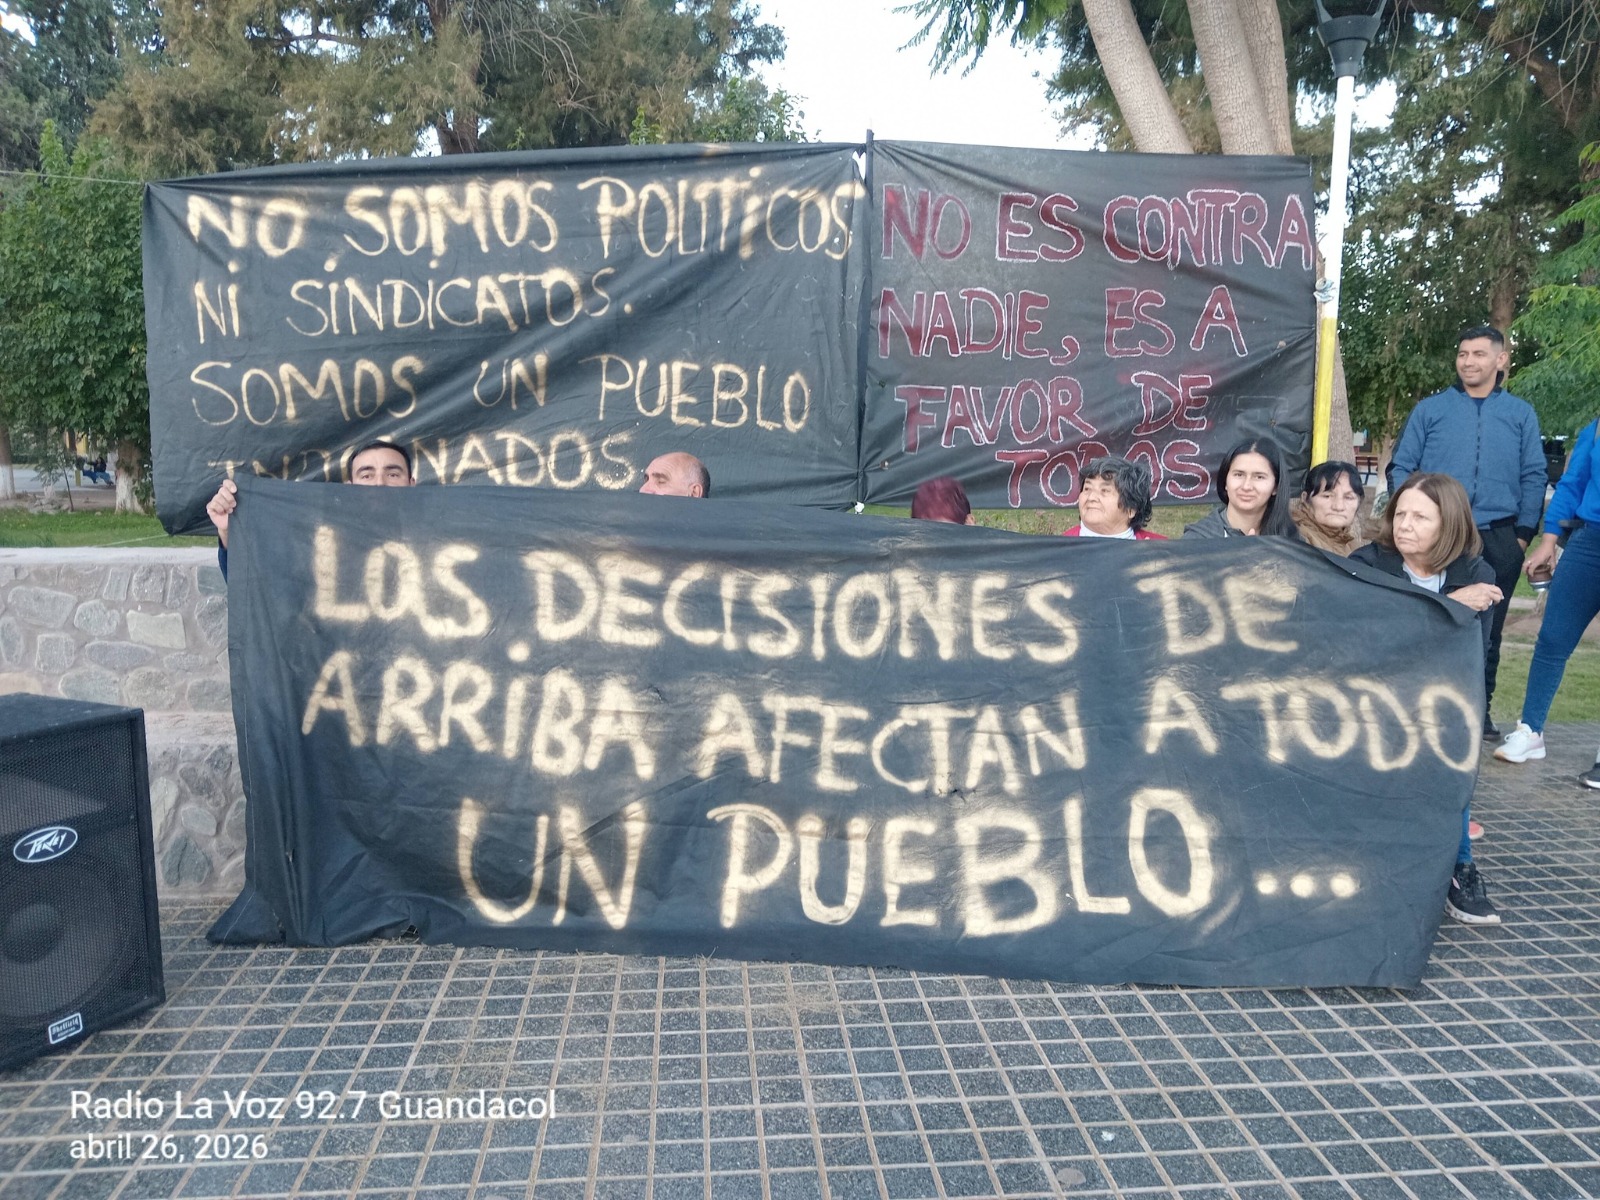 NO SOMOS POLITICOS
Ni SINDICATOS.
SOMOS UN PUEBLO
NO ES CONTRA
NADIE, ES A
FAVOR DE
TODOS
LAS DECISIONES DE
ARRIBA AFECTAN A TODO
UN PUEBLO...
PEAVEY
Sheffield
Radio La Voz 92.7 Guandacol
abril 26, 2026